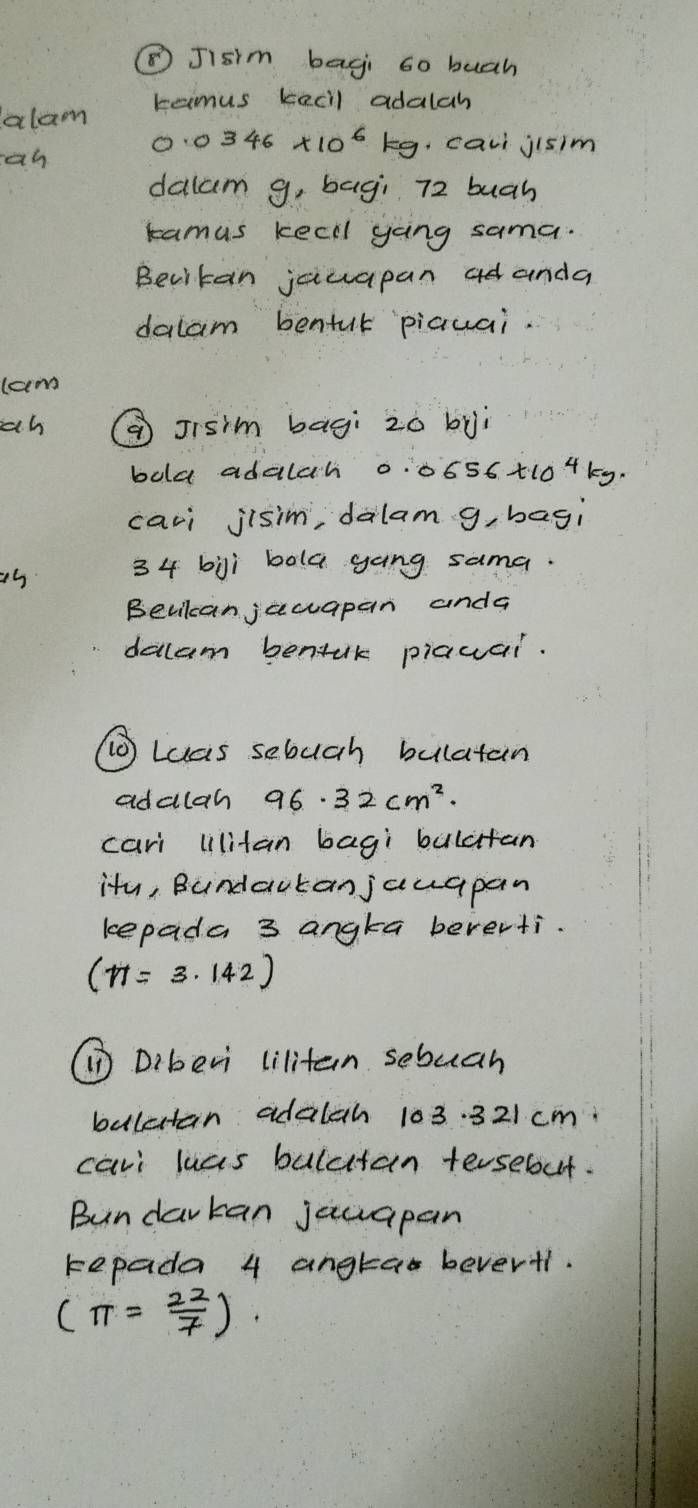 alam
ah
lam
ah
ah
⑧ Jisim bagi 60 buah
kamus kecil adalah
0.0346 ×10⁶ kg. cari jisim
dalam g, bagi 72 buah
kamus kecil yang sama.
Berikan jawapan anda
dalam bentuk piawai.
⑨ Jisim bagi 20 biji
bola adalah 0.0656×10⁴ kg.
cari jisim, dalam g, bagi
34 biji bola yang sama.
Berikan jawapan anda
dalam bentuk piawai.
⑩ Luas sebuah bulatan
adalah 96.32 cm².
cari lilitan bagi bulatan
itu, Bundarkan jawapan
kepada 3 angka bererti.
(π = 3.142)
⑪ Diberi lilitan sebuah
bulatan adalah 103.321 cm.
cari luas bulatan tersebut.
Bundarkan jawapan
kepada 4 angka bererti.
(π = 22/7).